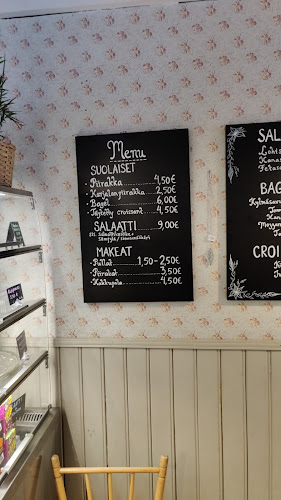 Menu
SUOLAISET
· Piirakka 4,50€
· Karjalanpiirakka 2,50€
· Bagel 6,00€
· Täytetty croissant 4,50€
SALAATTI 9,00€
MAKEAT
· Pullat 1,50-2,50€
· Piirakat 3,50€
· Kakkupala 4,50€
SAL
Lohis
Kanas
Fetasa
BAG
Kylmäsavu
CROI